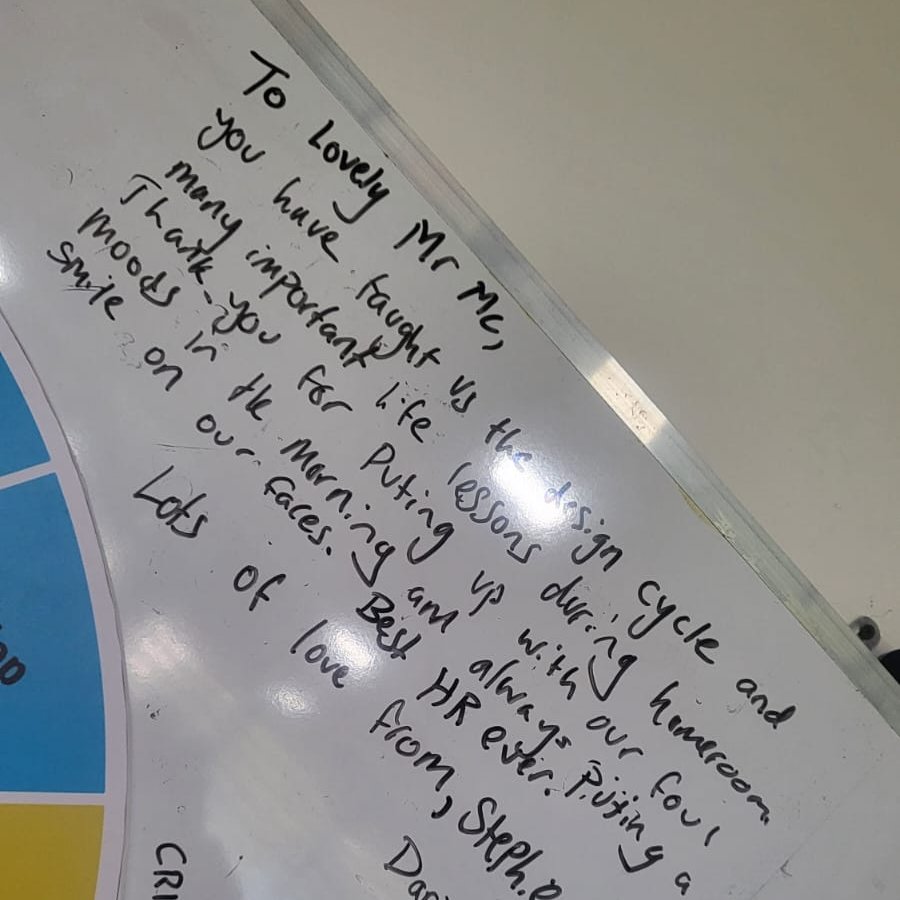 To Lovely Mr Mc,
you have taught us the design cycle and
many important life lessons during homeroom
Thank you for Puting up with our foul
moods in the morning and always Puting a
smile on our faces. Best HR ever.
Lots of love from, Steph.e